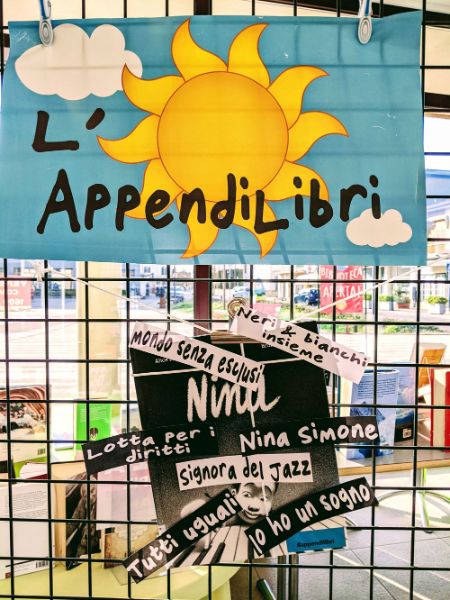 L'
AppendiLibri
Neri & bianchi
insieme
mondo senza esclusi
Nina
Lotta per i
diritti
Nina Simone
signora del Jazz
Tutti uguali
Io ho un sogno
#appendilibri